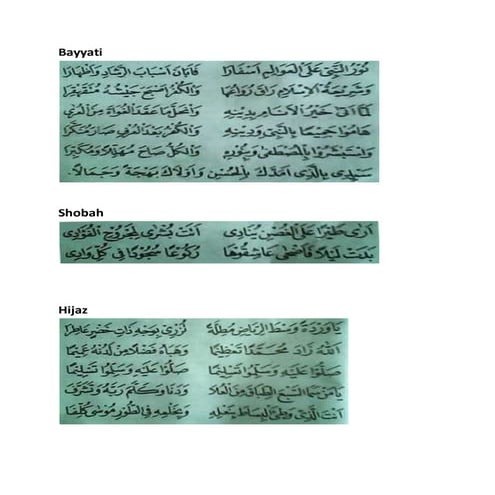 Bayyati
نُورُ النَّبِيِّ عَلَى الْعَوَالِمِ أَسْفَارَا فَأَبَانَ أَسْبَابَ الرَّشَادِ وَأَظْهَارَا
وَشَرِيعَةُ الْإِسْلَامِ وَالْكُفْرُ أَصْبَحَ جَيْشُهُ مُتَقَهْقِرَا
لَمَّا أَتَى خَيْرُ الْأَنَامِ بِدِينِهِ وَانْحَلَّ مَا عَقَدَ
هَامُوا جَمِيعًا بِالنَّبِيِّ وَدِينِهِ وَالْكُفْرُ بَعْدَ صَارَ مُنَكَّرَا
وَاسْتَبْشَرُوا بِالْمُصْطَفَى وَبِنُورِهِ وَالْكُلُّ صَاحَ مُهَلِّلًا وَمُكَبِّرَا
سَيِّدِي بِالَّذِي أَمَدَّكَ بِالْحُسْنِ وَأَوْلَاكَ بَهْجَةً وَجَمَالًا
Shobah
أَرَى طَيْرًا عَلَى الْغُصْنِ يُنَادِي أَنْتَ
بَدَتْ لَيْلًا فَأَضْحَى عَاشِقُوهَا رُكُوعًا سُجُودًا فِي كُلِّ وَادِي
Hijaz
يَا وَرْدَةً وَسْطَ الرِّيَاضِ مُطِلَّةً بِوَجْهِ ذَاتِ
اَللهُ زَادَ مُحَمَّدًا تَعْظِيمًا وَحَبَاهُ فَضْلًا مِنْ لَدُنْهُ عَظِيمًا
صَلُّوا عَلَيْهِ وَسَلِّمُوا تَسْلِيمًا صَلُّوا عَلَيْهِ وَسَلِّمُوا تَسْلِيمًا
يَا مَنْ سَمَا السَّبْعَ الطِّبَاقَ مِنَ الْعُلَا وَدَنَا وَكَلَّمَ رَبَّهُ وَتَشَرَّفَ
أَنْتَ الَّذِي وَطِئَ الْبِسَاطَ بِنَعْلِهِ وَبِخَلْعِهِ فِي الطُّورِ مُوسَى كُلِّفَا